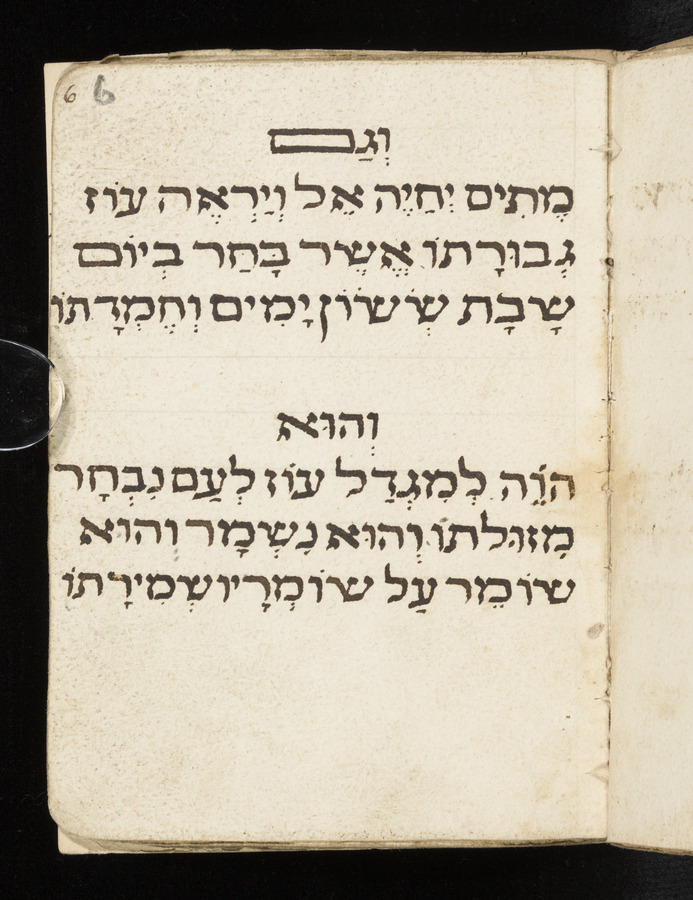 6 6
וְגַם
מֵתִים יְחַיֶה אֵל וְיַרְאֶה עוֹז
גְבוּרָתוֹ אֲשֶר בָּחַר בְיוֹם
שָבָת שְשוֹן יָמִים וְחֶמְדָתוֹ
וְהוּא
הוֹיֶה לְמִגְדַל עוֹז לְעַם נִבְחָר
מִזוּלתוֹ וְהוּא נִשְמָר וְהוּא
שוֹמֵר עַל שוֹמְרָיו שְמִירָתוֹ